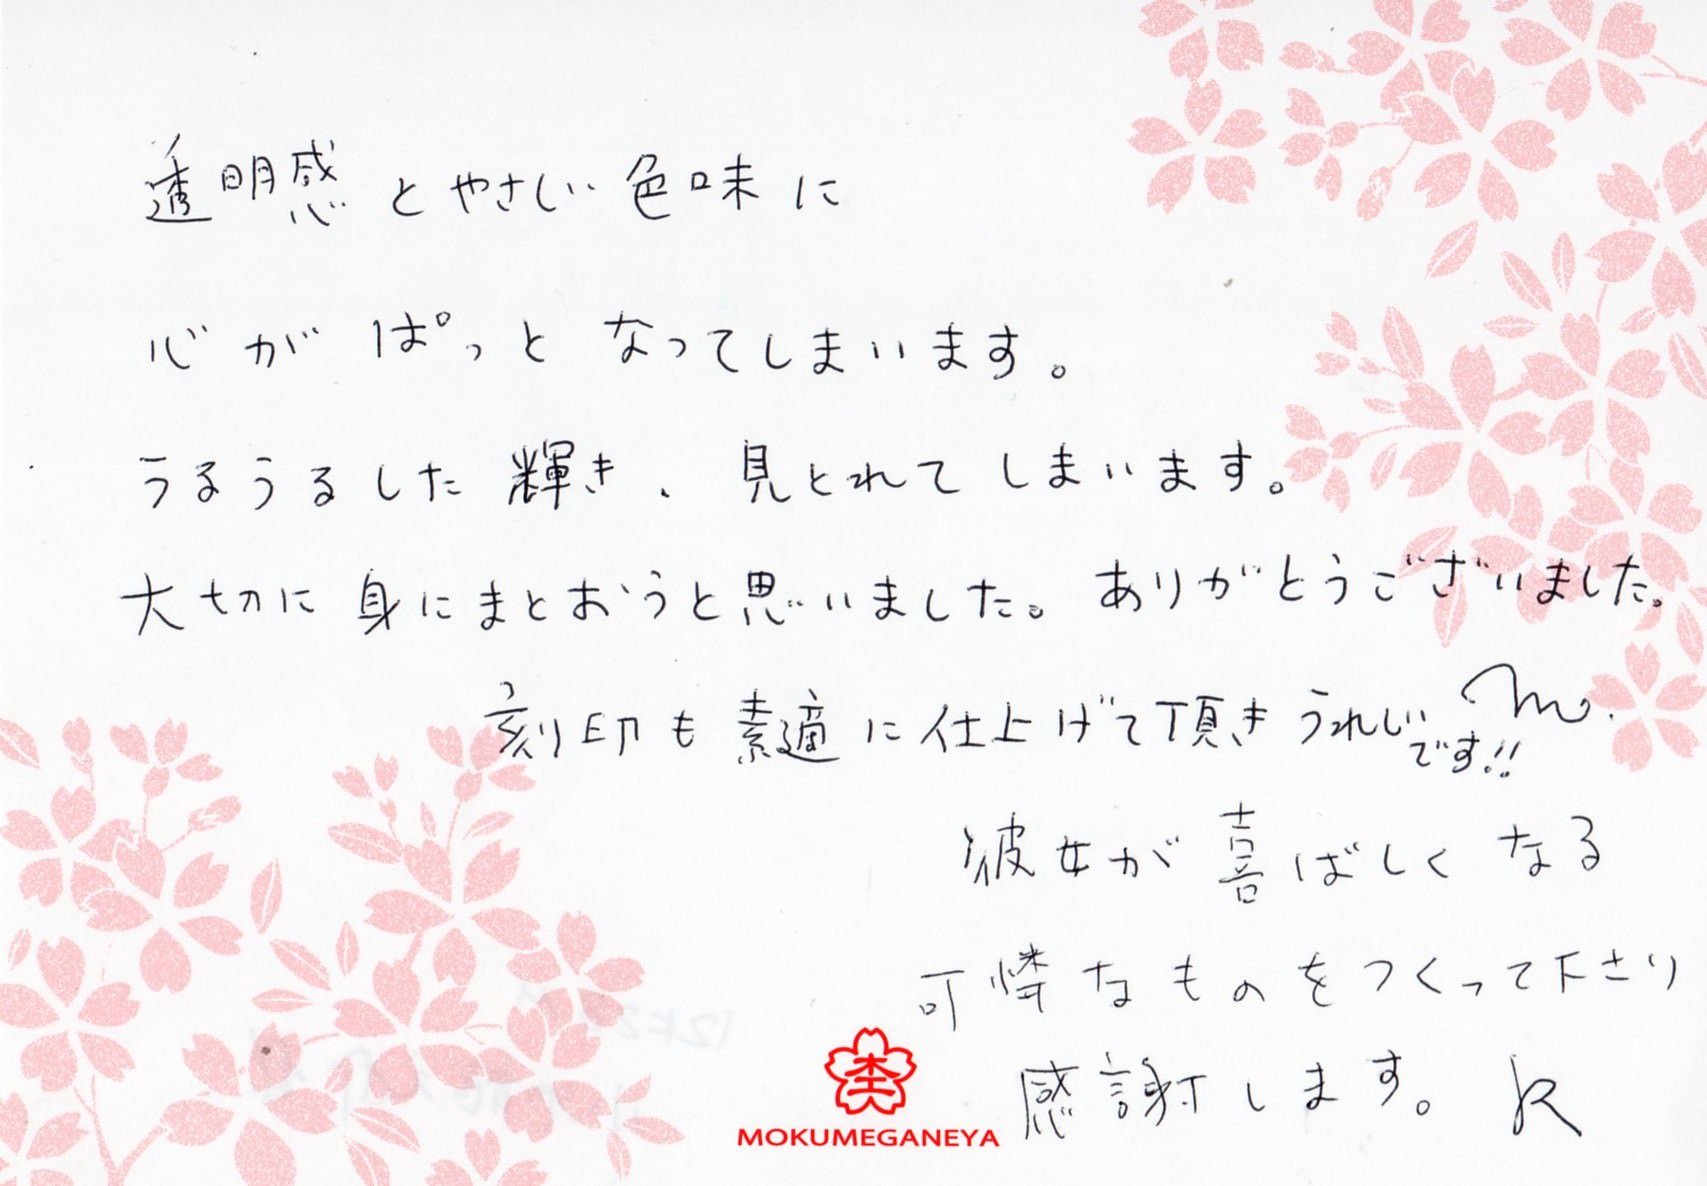 透明感とやさしい色味に
心がぱっとなってしまいます。
うるうるした輝き、見とれてしまいます。
大切に身にまとおうと思いました。ありがとうございました。
刻印も素適に仕上げて頂きうれしい
です!! m.
彼女が喜ばしくなる
可憐なものをつくって下さり
感謝します。 K
MOKUMEGANEYA